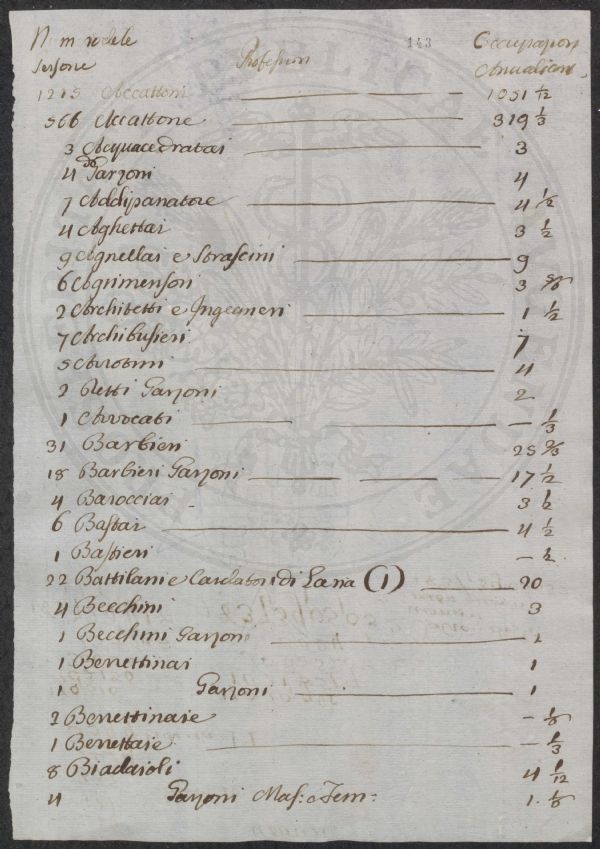 Num. delle Professioni 143 Occupazioni
Persone Annualiani
1215 Accattoni 1051 1/2
566 Accattone 319 1/3
3 Acquacedratai 3
4 do Garzoni 4
7 Addipanatore 4 1/2
4 Aghettai 3 1/2
9 Agnellai e Strascini 9
6 Agrimensori 3 5/6
2 Architetti e Ingegneri 1 1/2
7 Archibusieri 7
5 Arrotini 4
2 Detti Garzoni 2
1 Avvocati - 1/3
31 Barbieri 25 2/3
18 Barbieri Garzoni 17 1/2
4 Barocciai 3 1/2
6 Bastai 4 1/2
1 Bastieri - 1/2
22 Battilani e Cardatori di Lana (1) 20
4 Becchini 3
1 Becchini Garzoni 1
1 Berrettinai 1
1 Garzoni 1
2 Berrettinaie - 1/6
1 Berrettaie - 1/3
8 Biadaioli 4 1/12
4 Garzoni Mas: e Fem: 1. 1/6